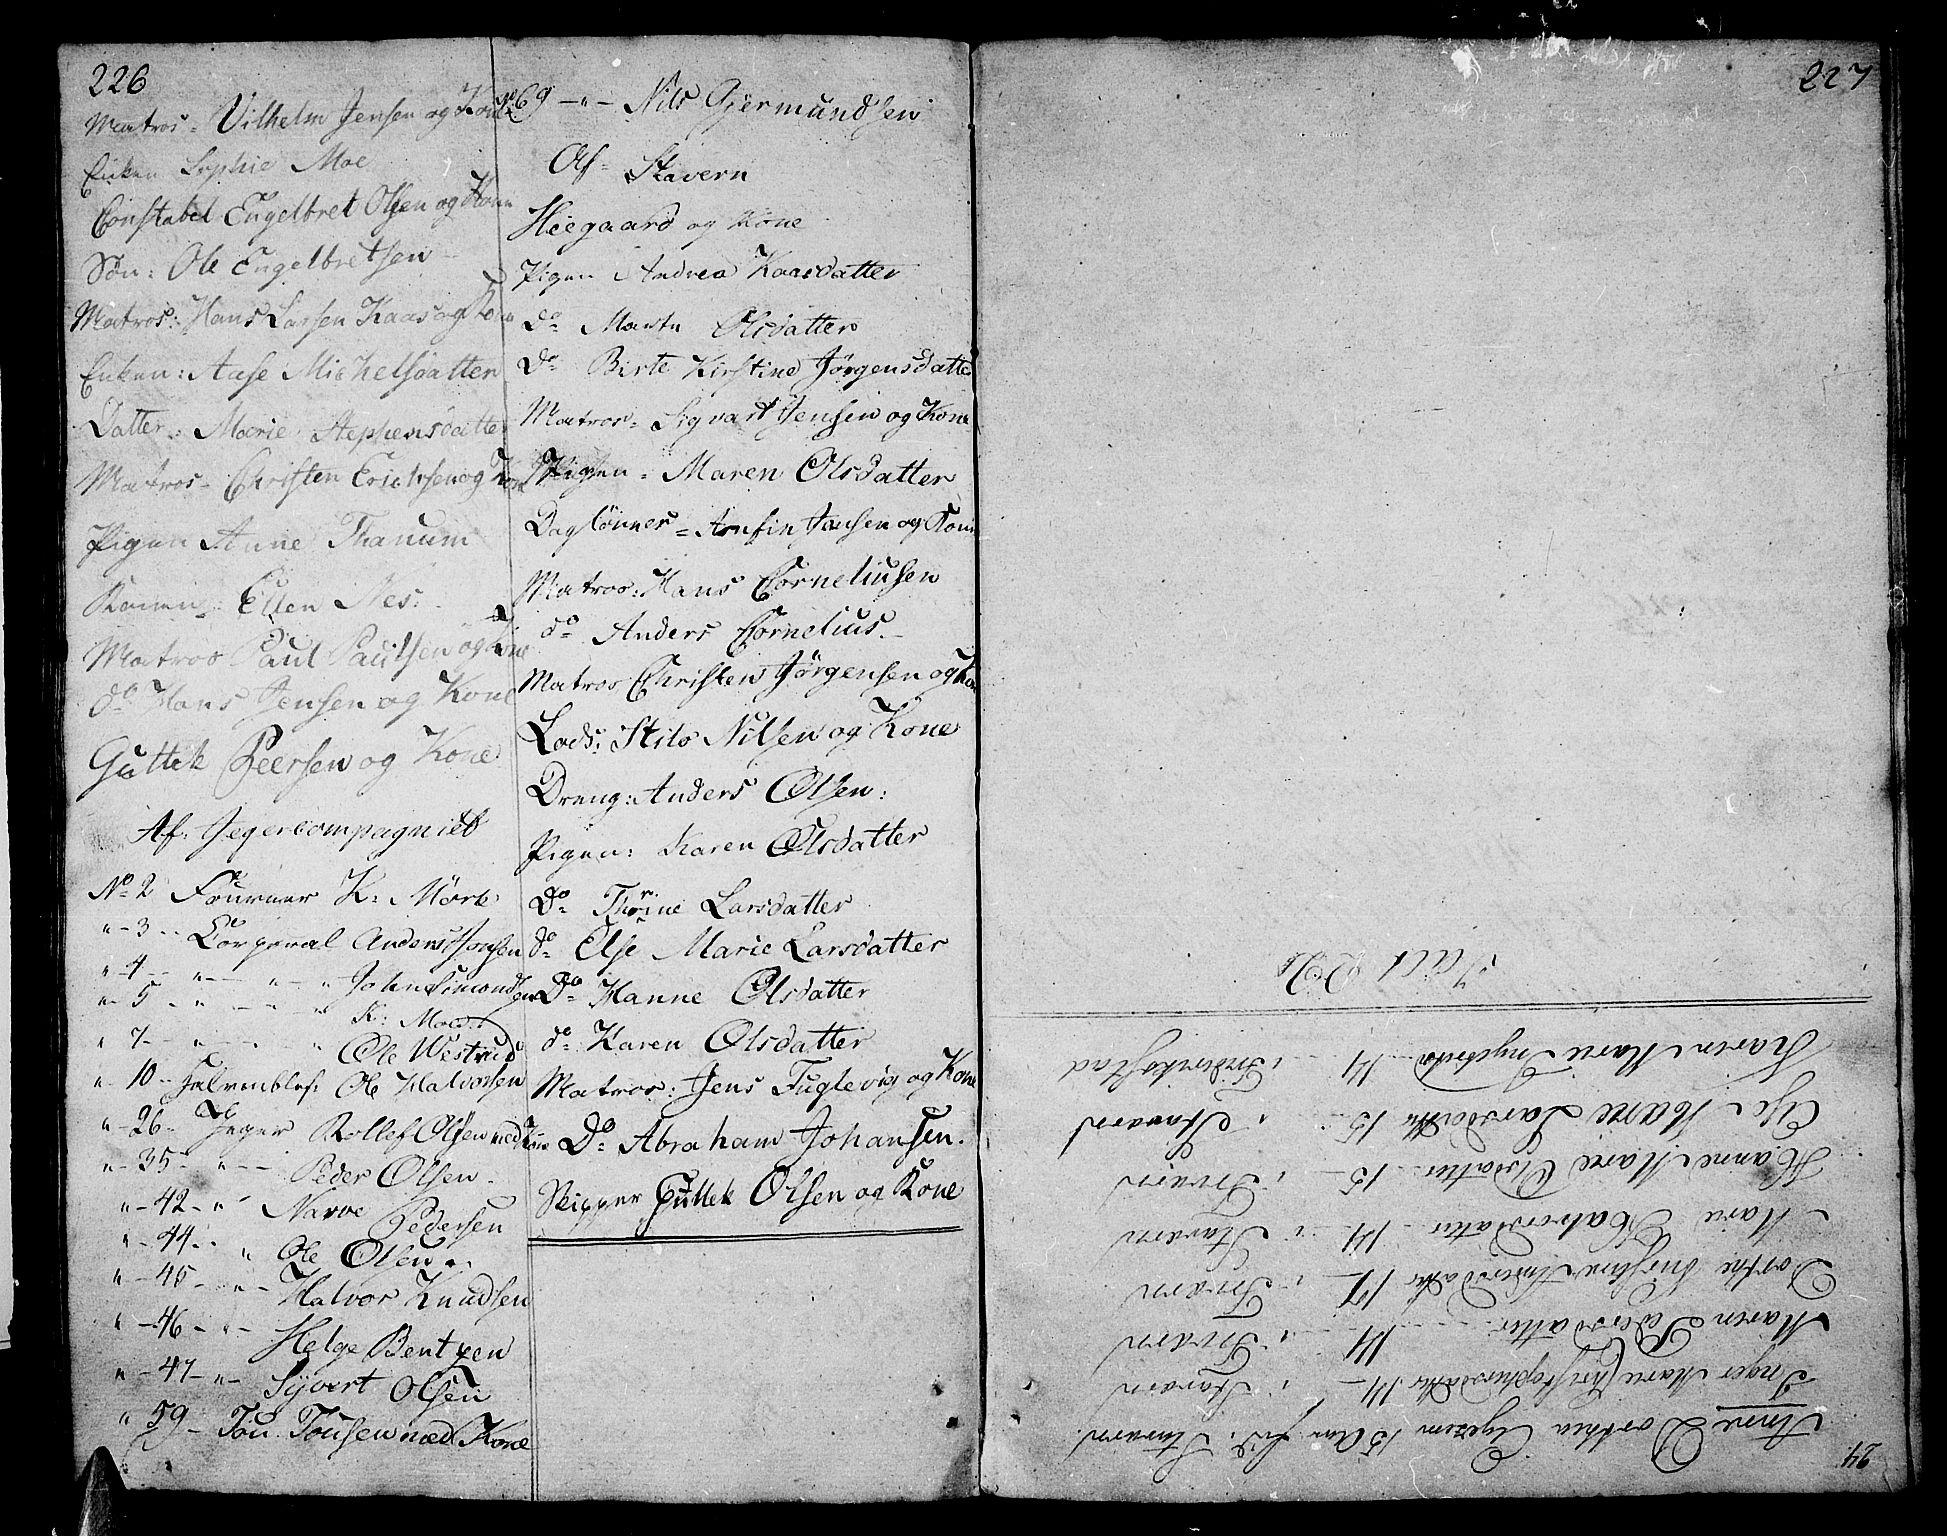 226
Matros = Vilhelm Jensen og Kone
Enken Sophie Moe
Constabel Engelbret Olsen og Kone
Søn: Ole Engelbretsen
Matros: Hans Larsen Kaas og Kone
Enken: Aase Michelsdatter
Datter: Marie Stephensdatter
Matros = Christen Erichsen og Kone
Pigen Anne Thanum
Konen Ellen Nes:
Matros Paul Paulsen og Kone
do Hans Jensen og Kone
Guttek Peersen og Kone
Af: Jegercompagniet
No 2 Fourneer K: Mörk
" - 3 - - Corporal Anders Jonsen
" - 4 - - " - - " - " John Simondsen
" - 5 - " - - " - " K: Moe
" 7 - - " - - " Ole Westrud
" - 10 - Halvmblef: Ole Halvorsen
" - 26 - Jeger Rollef Olsen med Kone
" - 35 - " - - Peder Olsen
" - 42 - " Narve Pedersen
" - 44 - - " Ole Olsen
" - 45 - " - Halvor Knudsen
" - 46 - " - Helge Bentzen
" - 47 - " - Syvert Olsen
" 59 - Tou Tousen med Kone
No 69 - " - Nils Gjermundsen
Af = Stavern
Heegaard og Kone
Pigen Andrea Kaasdatter
do Marte Olsdatter
Do Birte Kirstine Jörgensdatter
Matros = Sigvart Jensen og Kone
Pigen = Maren Olsdatter
Daglönner = Arnfin Jansen og Kone
Matros: Hans Corneliusen
do Anders Cornelius
Matros Christen Jörgensen og Kone
Lods: Stilo Nilsen og Kone
Dreng: Anders Olsen:
Pigen: Karen Olsdatter
Do Thrine Larsdatter
do Else Marie Larsdatter
Do Hanne Olsdatter
do Karen Olsdatter
Matros: Jens Fuglevig og Kone
Do Abraham Johansen.
Skipper Guttek Olsen og Kone
227
24
Anne Dorthea 15 Aar fød i Staværn
Inger Marie Christophersdatter 14 - i Staværn
Maren Pedersdatter 14 - i Stværn
Dorthe Kirstine Andersdatter 17 - i Stværn
Marie Halvorsdatter - 14 - i Staværn
Hanne Marie Olsdatter - 15 - i Stværn
Else Marie Larsdatter 15 - i Staværn
Karen Marie 14 - i Frideriksstad